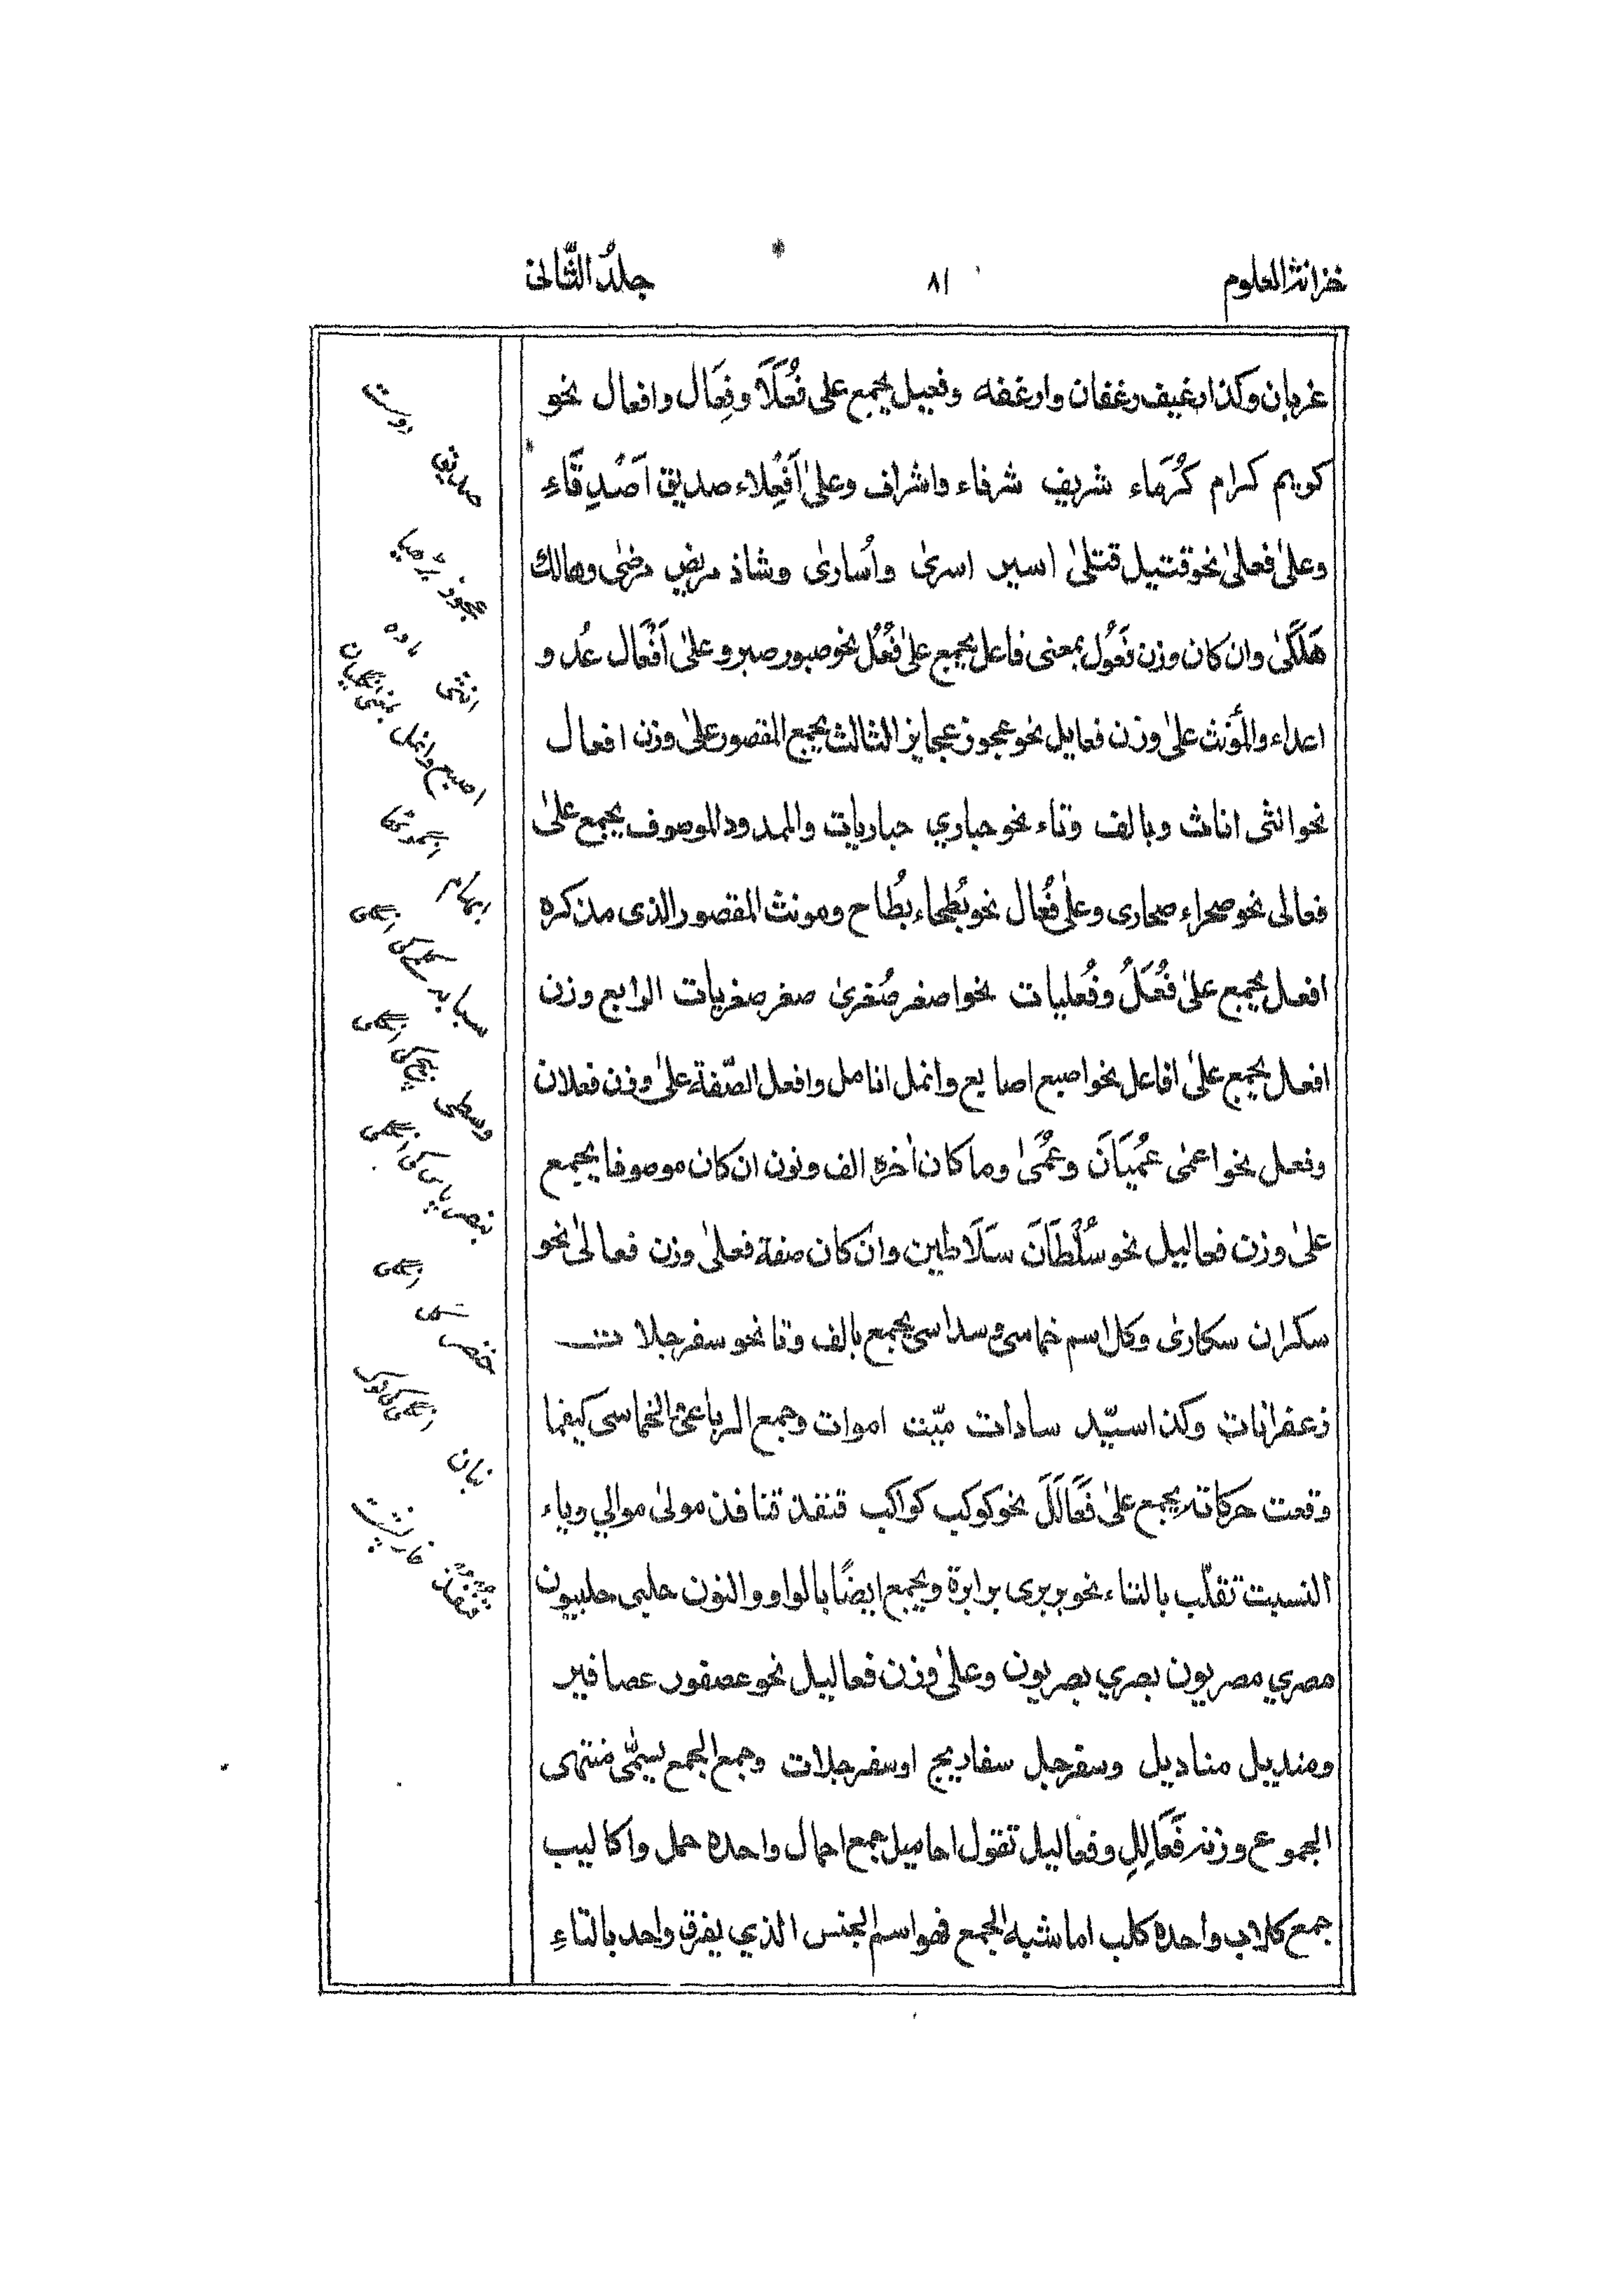 خزانة العلوم ٨١ جلد الثانی
غربان وكذا رغيف رغفان وارغفه وفعيل يجمع على فُعَلَاَ وفِعَال وافعال نحو
كريم كرام كُرَمَاء شريف شرفاء واشراف وعلىٰ اَفْعِلاء صديق اَصْدِقَاءِ
وعلىٰ فعلىٰ نحو قتيل قتلىٰ اسير اسرىٰ واُسارىٰ وشاذ مريض مرضٰى وهالك
هَلَكىٰ وان كان وزن فَعُول بمعنى فاعل يجمع علىٰ فُعُل نحو صبور صبر وعلىٰ اَفْعال عُدو
اعداء والمؤنث علىٰ وزن فعايل نحو عجوز عجايز الثالث يجمع المقصور علىٰ وزن افعال
نحو انثى اناث وبالف وتاء نحو حباري حباريات والممدود الموصوف يجمع علىٰ
فعالى نحو صحراء صحارى وعلىٰ فُعَال نحو بُطحاء بُطاح ومونث المقصور الذى مذكره
افعل يجمع علىٰ فُعَلُ وفُعليات نحو اصغر صُغرىٰ صغر صغريات الرابع وزن
افعل يجمع علىٰ افاعل نحو اصبع اصابع وانمل انامل وافعل الصّفة علىٰ وزن فعلان
وفعل نحو اعمٰى عُمْيَانَ وعُمْىٰ وما كان اٰخره الف ونون ان كان موصوفا يجمع
علىٰ وزن فعاليل نحو سُلْطَانَ سَلَاطين وان كان صفة فعلىٰ وزن فعالىٰ نحو
سكران سكارىٰ وكل اسم خماسى وسداسى يجمع بالف وتا نحو سفرجلات
زعفرانات وكذا سيّد سادات ميّت اموات وجمع الرباعى والخماسى كيفما
وقعت حركاته يجمع علىٰ فَعَالَلَ نحو كوكب كواكب قنفذ قنافذ مولىٰ موالي وياء
النسبت تقلّب بالتاء نحو بربرى برابرة ويجمع ايضًا بالواو والنون حلبى حلبيون
مصري مصريون بصري بصريون وعلىٰ وزن فعاليل نحو عصفور عصافير
ومنديل مناديل وسفرجل سفاريج اوسفرجلات وجمع الجمع يسمّٰى منتهى
الجموع وزنه فَعَالِلِ وفعاليل تقول احاميل جمع احمال واحده حمل واكاليب
جمع كلاب واحده كلب اما شبه الجمع فهو اسم الجنس الذي يفرق واحد بالتاءِ
صديق دوست
عجوز بڑھیا
انثى ماده
اصبع وانمل
ابهام انگوٹھا
سبابه انگلی
وسطى بیچ کی انگلی
بنصر پاس کی انگلی
خنصر انگلی
بنان
قنفذ خارپشت